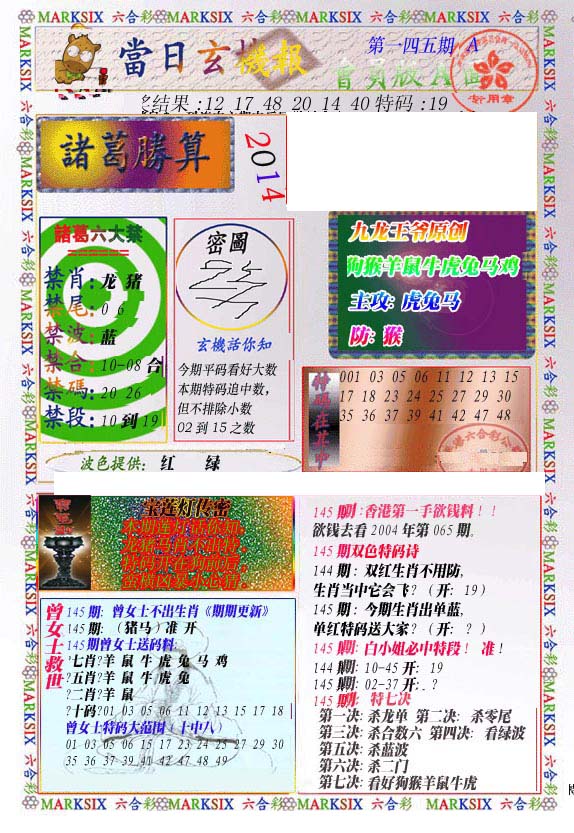 MARKSIX 六合彩MARKSIX 六合彩MARKSIX 六合彩MARKSIX 六合彩
當日玄機報
第一四五期 A
會員版A
专用章
结果:12 17 48 20 14 40 特码:19
諸葛勝算
2014
諸葛六大禁
禁肖:龙 猪
禁尾:0 6
禁波:蓝
禁合:10-08 合
禁碼:20 26
禁段:10 到 19
密圖
玄機活你知
今期平码看好大数
本期特码追中数,
但不排除小数
02 到 15 之数
九龙王爷原创
狗猴羊鼠牛虎兔马鸡
主攻: 虎兔马
防: 猴
001 03 05 06 11 12 13 15
17 18 23 24 25 27 29 30
35 36 37 39 41 42 47 48
波色提供: 红 绿
宝莲灯传密
本期莲灯话你知,
145 期:香港第一手欲钱料!!
欲钱去看 2004 年第 065 期。
145 期双色特码诗
144 期: 双红生肖不用防,
生肖当中它会飞? (开: 19)
145 期: 今期生肖出单蓝,
单红特码送大家? (开: ? )
145 期: 白小姐必中特段! 准!
144 期: 10-45 开: 19
145 期: 02-37 开: ?
145 期: 特七决
第一决: 杀龙单 第二决: 杀零尾
第三决: 杀合数六 第四决: 看绿波
第五决: 杀蓝波
第六决: 杀二门
第七决: 看好狗猴羊鼠牛虎
曾女士救世
145 期: 曾女士不出生肖《期期更新》
145 期: (猪马)准 开
145 期曾女士送码料
?七肖?羊 鼠 牛 虎 兔 马 鸡
?五肖?羊 鼠 牛 虎 兔
?二肖?羊 鼠
?十码?01 03 05 06 11 12 13 15 17 18
曾女士特码大范围(十中八)
01 03 05 06 15 17 23 24 25 27 29 30
35 36 37 39 41 42 47 48 49
MARKSIX 六合彩MARKSIX 六合彩MARKSIX 六合彩MARKSIX 六合彩